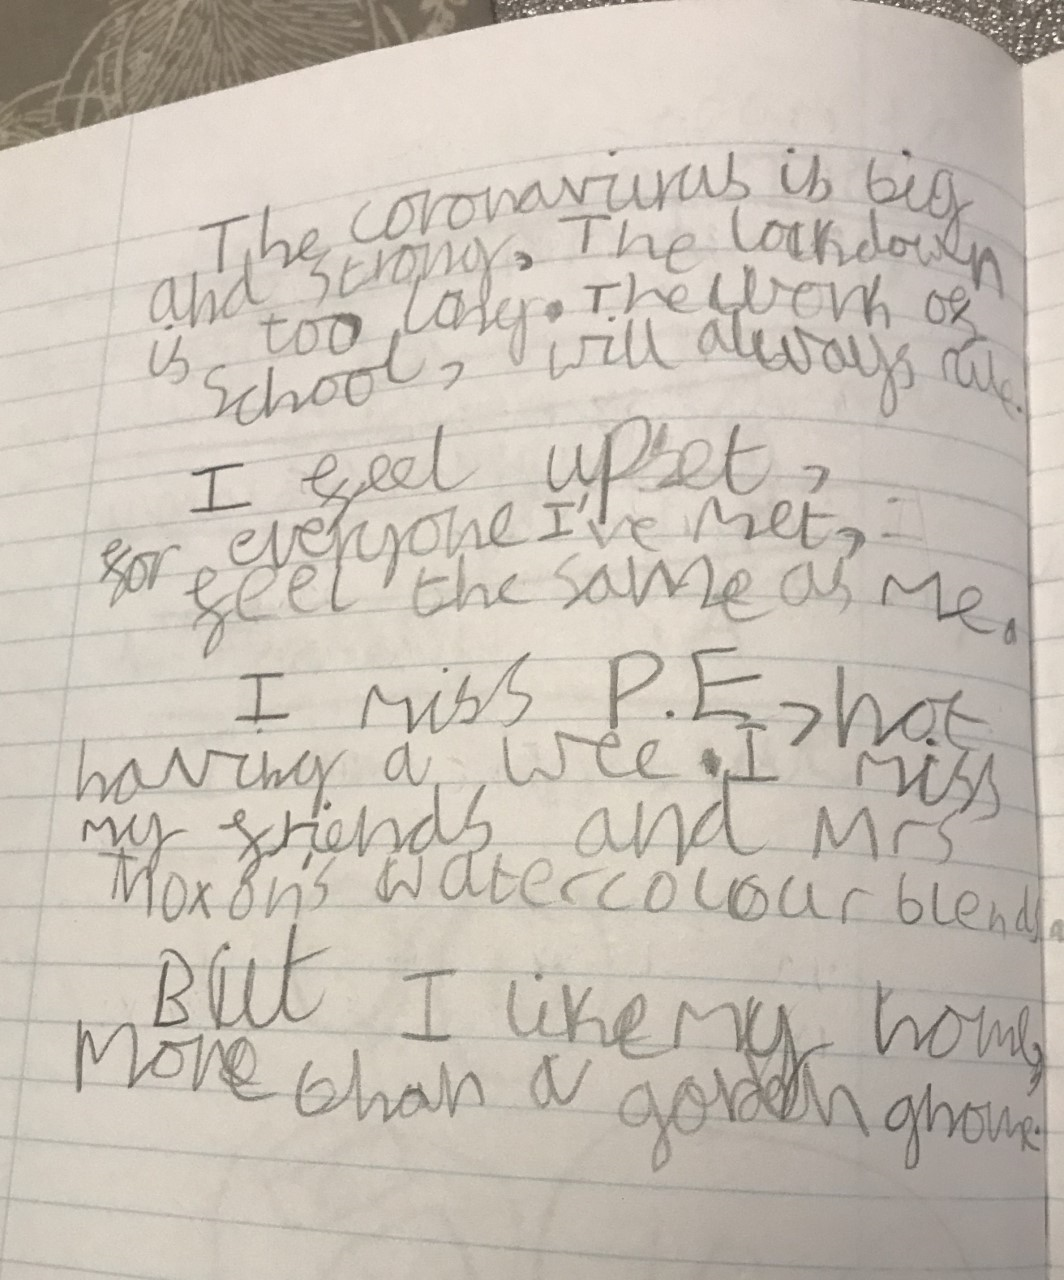 The coronavirus is big
and strong, The lockdown
is too long. The work of
school, will always rule.
I feel upset,
for everyone I've met,
feel the same as me.
I miss P.E, not
having a wee. I miss
my friends and Mrs
Moxon's watercolour blends.
But I like my home,
More than a golden gnome.